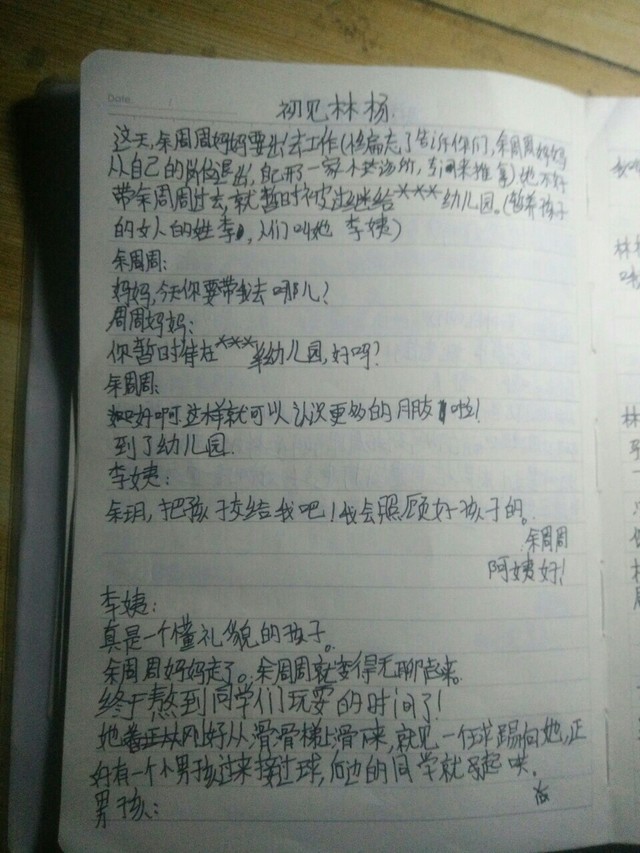 Date: /
初见林杨
这天,余周周妈妈要出去工作(作偏先了告诉你们,余周周妈妈
从自己的岗位退出,自己开了一家 场所,专门来推拿)她不好
带余周周过去,就暂时被过继给***幼儿园。(暂养孩子
的女人的姓李,人们叫她 李姨)
余周周:
妈妈,今天你要带我去哪儿?
周周妈妈:
你暂时待在***幼儿园,好吗?
余周周:
好啊,这样就可以认识更多的朋友啦!
到了幼儿园.
李姨:
余玥,把孩子交给我吧!我会照顾好孩子的。
余周周
阿姨好!
李姨:
真是一个懂礼貌的孩子。
余周周妈妈走了。余周周就变得无聊起来。
终于熬到同学们玩耍的时间了!
她 刚好从滑滑梯上滑下来,就见一个球踢向她,正
好有一个小男孩过来接过球,后边的同学就 起哄。
男孩:
林
林